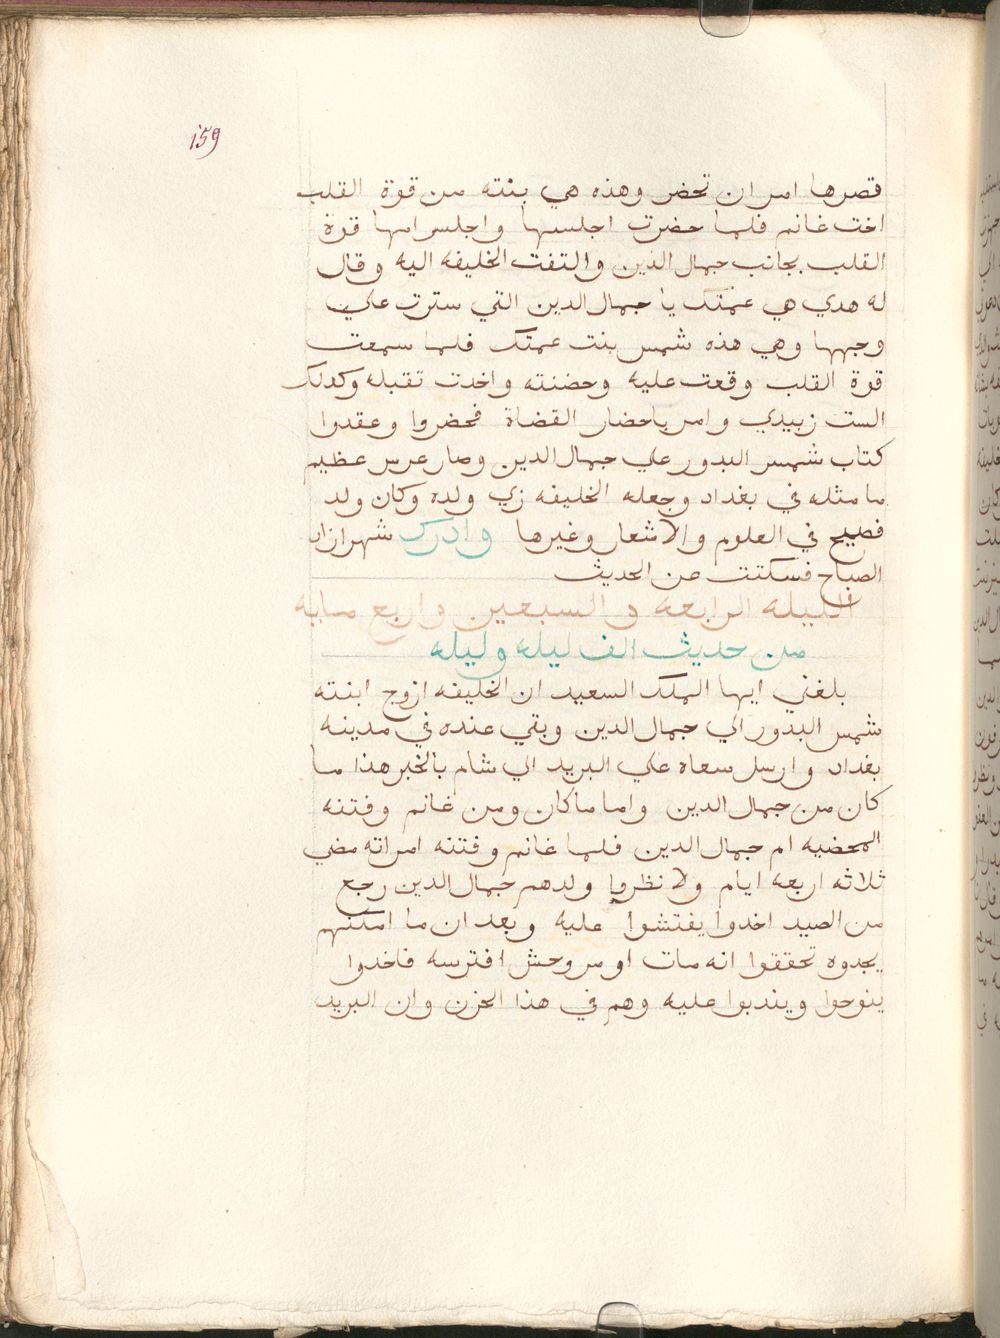 159
قصرها امر ان تحضر وهذه هي بنته من قوة القلب
اخت غانم فلما حضرت اجلسها واجلس امها قوة
القلب بجانب جمال الدين والتفت الخليفه اليه وقال
له هدي هي عمتك يا جمال الدين التي سترت علي
وجهها وهي هذه شمس بنت عمتك فلما سمعت
قوة القلب وقعت عليه وحضنته واخدت تقبله وكدلك
الست زبيدي وامر باحضار القضاة فحضروا وعقدوا
كتاب شمس البدور علي جمال الدين وصار عرس عظيم
ما مثله في بغداد وجعله الخليفه زي ولده وكان ولد
فصيح في العلوم والاشعار وغيرها وادرك شهرازاد
الصباح فسكتت عن الحديث
الليله الرابعه والسبعين واربع مايه
من حديث الف ليله وليله
بلغني ايها الملك السعيد ان الخليفه ازوج ابنته
شمس البدور الي جمال الدين وبقي عنده في مدينه
بغداد وارسل سعاه علي البريد الي شام بالخبر هذا ما
كان من جمال الدين واما ماكان ومن غانم وفتنه
المحضيه ام جمال الدين فلما غانم وفتنه امراته مضي
ثلاثه اربعه ايام ولا نظروا ولدهم جمال الدين رجع
من الصيد اخدوا يفتشوا عليه وبعد ان ما امكنهم
يجدوه تحققوا انه مات او مر وحش افترسه فاخدوا
ينوحوا ويندبوا عليه وهم في هذا الحزن وان البريد